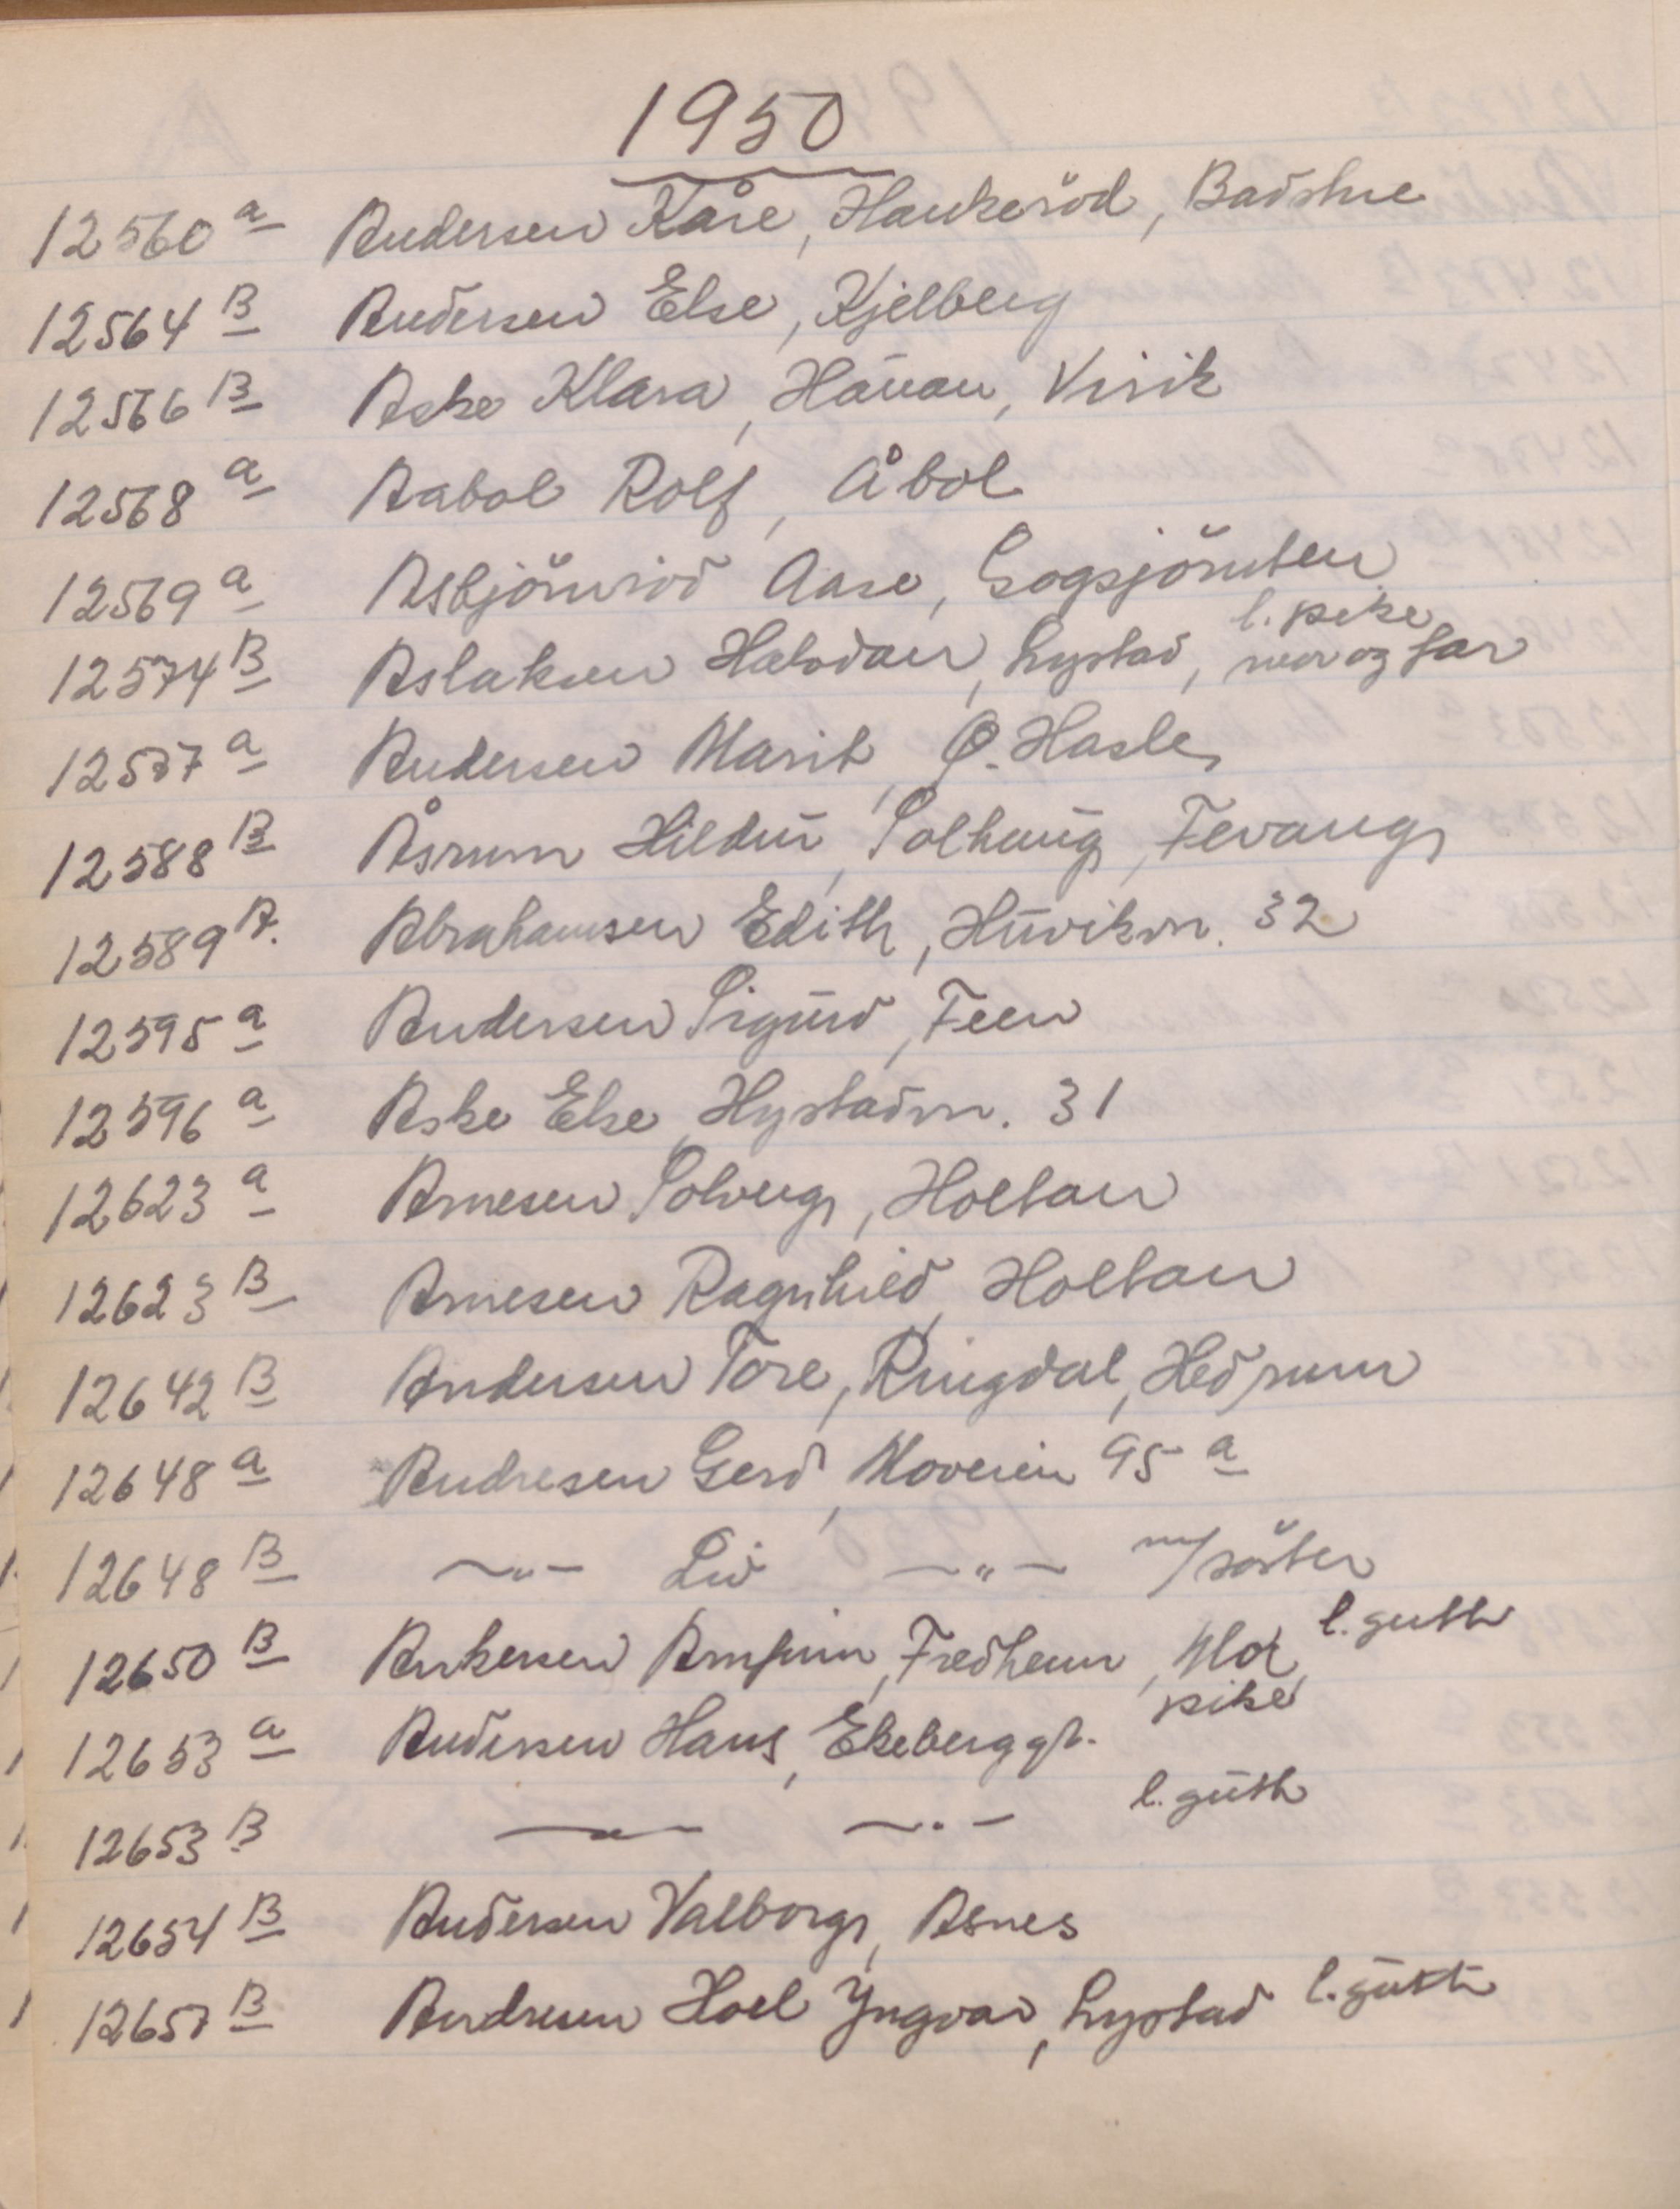 1950
12560 a Andersen Kåre, Haukeröd, Badstue
12564 B Andersen Else, Kjelberg
12566 B Aske Klara, Haúan, Virik
12568 a Aabol Rolf, Åbol
12569 a Asbjörnröd Aase, Gogsjörnten
l. pike
12574 B Aslaksen Halvdan, Lystad, mor og far
12577 a Andersen Marit, Ø. Hasle
12588 B Åsrum Hildur, Solhaug, Fevang
12589 A. Abrahamsen Edith, Huvikvn. 32
12595 a Andersen Sigurd, Feen
12596 a Aske Else, Hystadvn. 31
12623 a Arnesen Solveig, Holtan
12623 B Arnesen Ragnhild, Holtan
12642 B Andersen Tore, Ringdal, Hedrum
12648 a Andresen Gerd, Moveien 95 a
12648 B —"— Liv —"— m/söster
12650 B Ankersen Arnfinn, Fredheim, Mor, l. gutt
pike
12653 a Andersen Hans, Ekeberggt.
12653 B —"— —"— l. gutt
12654 B Andersen Valborg, Asnes
12657 B Andresen Hoel Yngvar, Lystad l. gutt